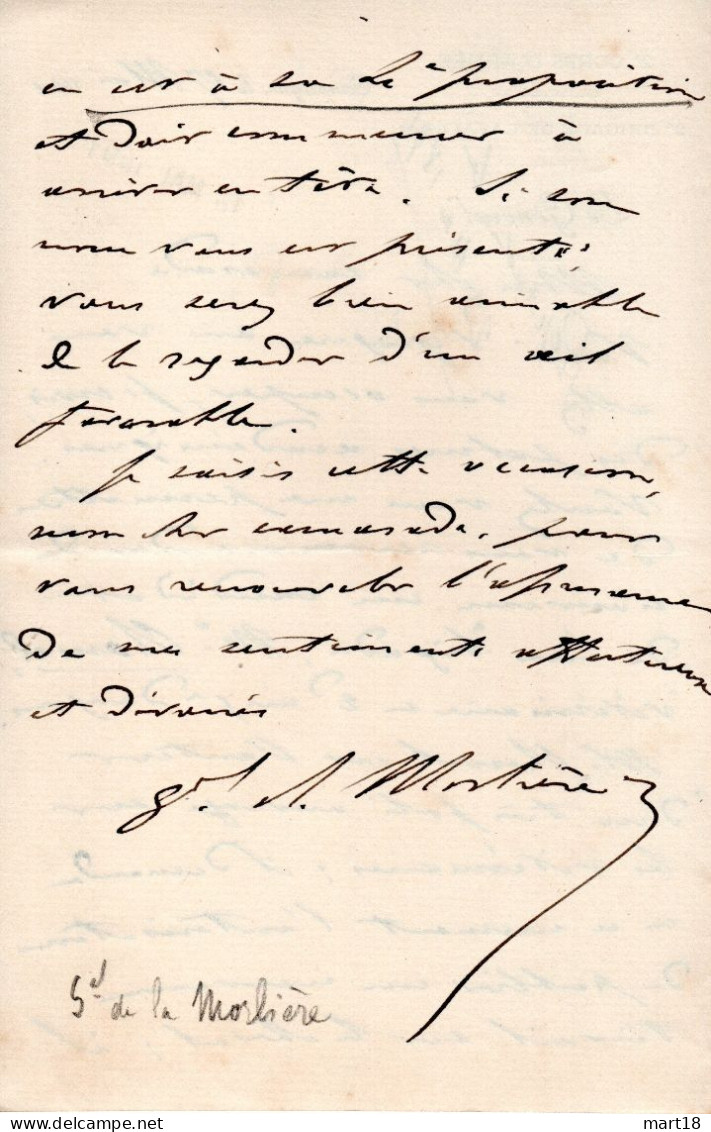 en est à sa 2e proposition
et doit commencer à
arriver en tête. Si son
nom vous est présenté
vous serez bien aimable
de le regarder d'un œil
favorable.
Je saisis cette occasion,
mon cher camarade, pour
vous renouveler l'assurance
de mes sentiments affectueux
et dévoués
Gal de la Morlière
Gal de la Morlière
mart18